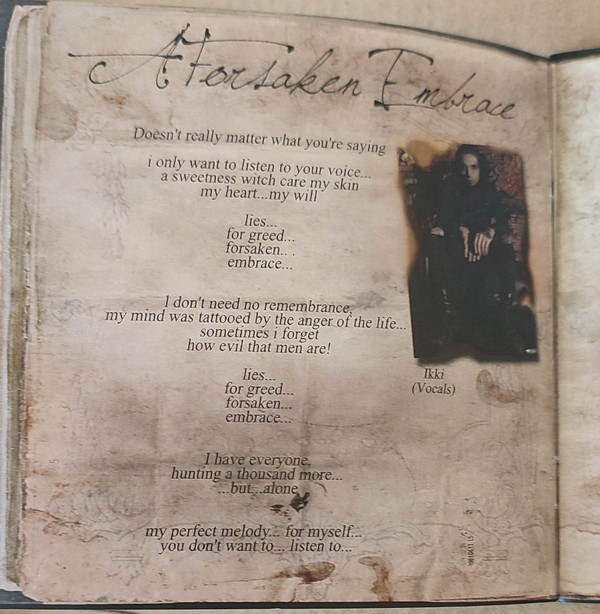 A Forsaken Embrace
Doesn't really matter what you're saying
i only want to listen to your voice...
a sweetness witch care my skin
my heart...my will
lies...
for greed...
forsaken.. .
embrace...
I don't need no remembrance,
my mind was tattooed by the anger of the life...
sometimes i forget
how evil that men are!
lies...
for greed...
forsaken...
embrace...
Ikki
(Vocals)
I have everyone,
hunting a thousand more...
...but...alone
my perfect melody... for myself...
you don't want to... listen to...